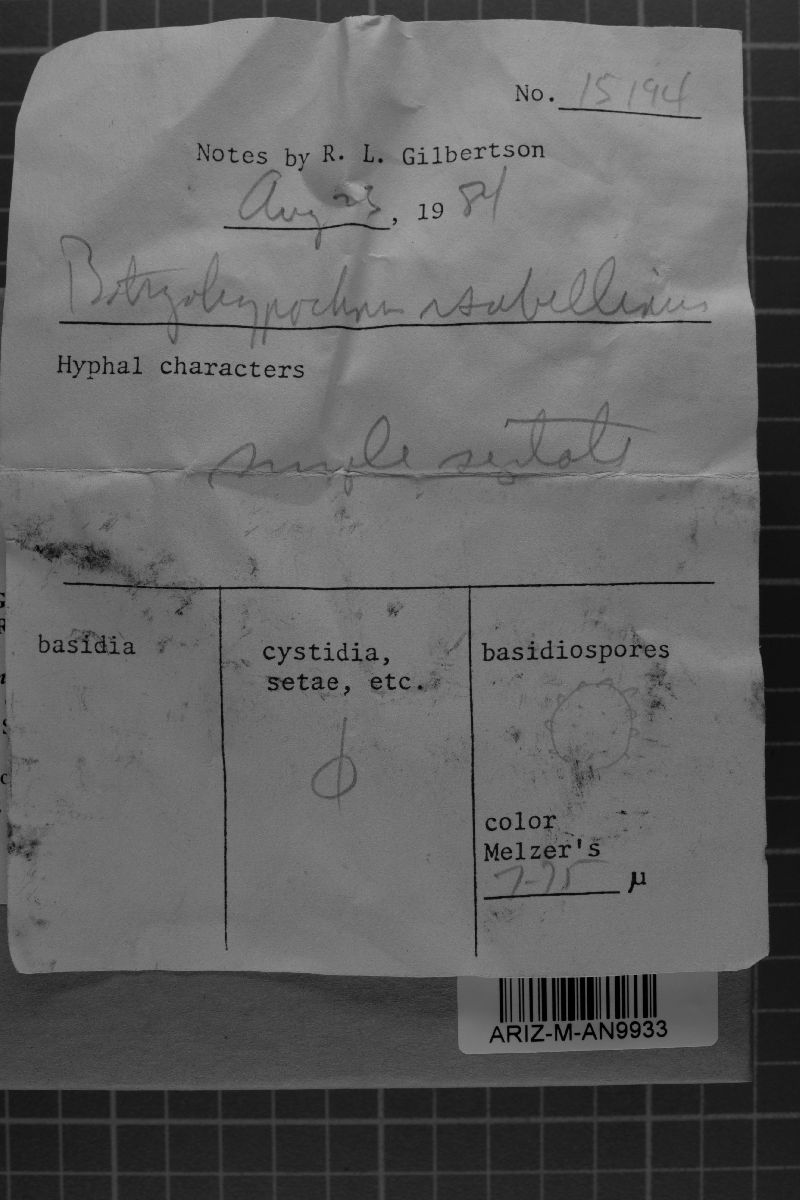 No. 15194
Notes by R. L. Gilbertson
Aug 23, 1984
Botryohypochnus isabellinus
Hyphal characters
simple septate
basidia
cystidia,
setae, etc.
basidiospores
color
Melzer's
7-75 μ
ARIZ-M-AN9933